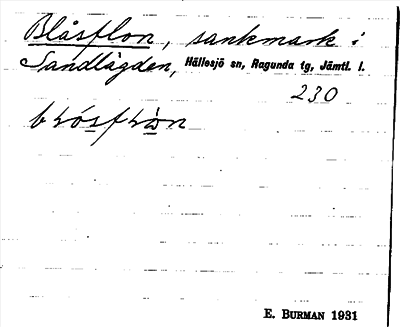 Blåsflon, sankmark i
Sandlägden, Hällesjö sn, Ragunda tg, Jämtl. l.
230
E. BURMAN 1931